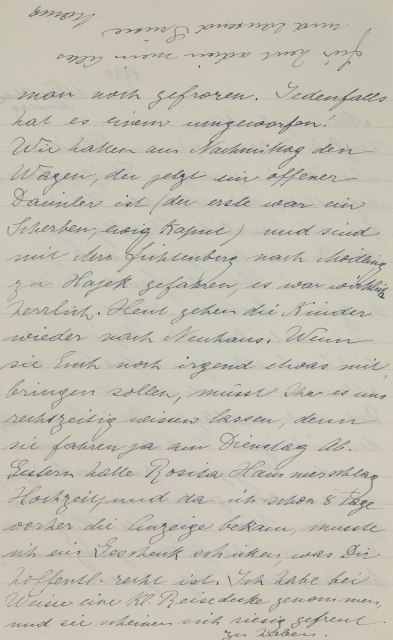 man noch gefroren. Jedenfalls
hat es einem umgeworfen!
Wir hatten am Nachmittag den
Wagen, der jetzt ein offener
Daimler ist (der erste war ein
Scherben, ewig kaput) und sind
mit Mrs Lichtenberg nach Mödling
zu Hajek gefahren, es war wirklich
herrlich. Heut gehen die Kinder
wieder nach Neuhaus. Wenn
sie Euch noch irgend etwas mit
bringen sollen, müsst Ihr es uns
rechtzeitig wissen lassen, denn
sie fahren ja am Dienstag ab.
Gestern hatte Rosita Hammerschlag
Hochzeit, und da ich schon 8 Tage
vorher die Anzeige bekam, musste
ich ein Geschenk schicken, was Dir
hoffentl. recht ist. Ich habe bei
Weisse eine kl. Reisedecke genommen,
und sie scheinen sich riesig gefreut
zu haben.
für heut adieu mein
und tausend Grüsse
Mama